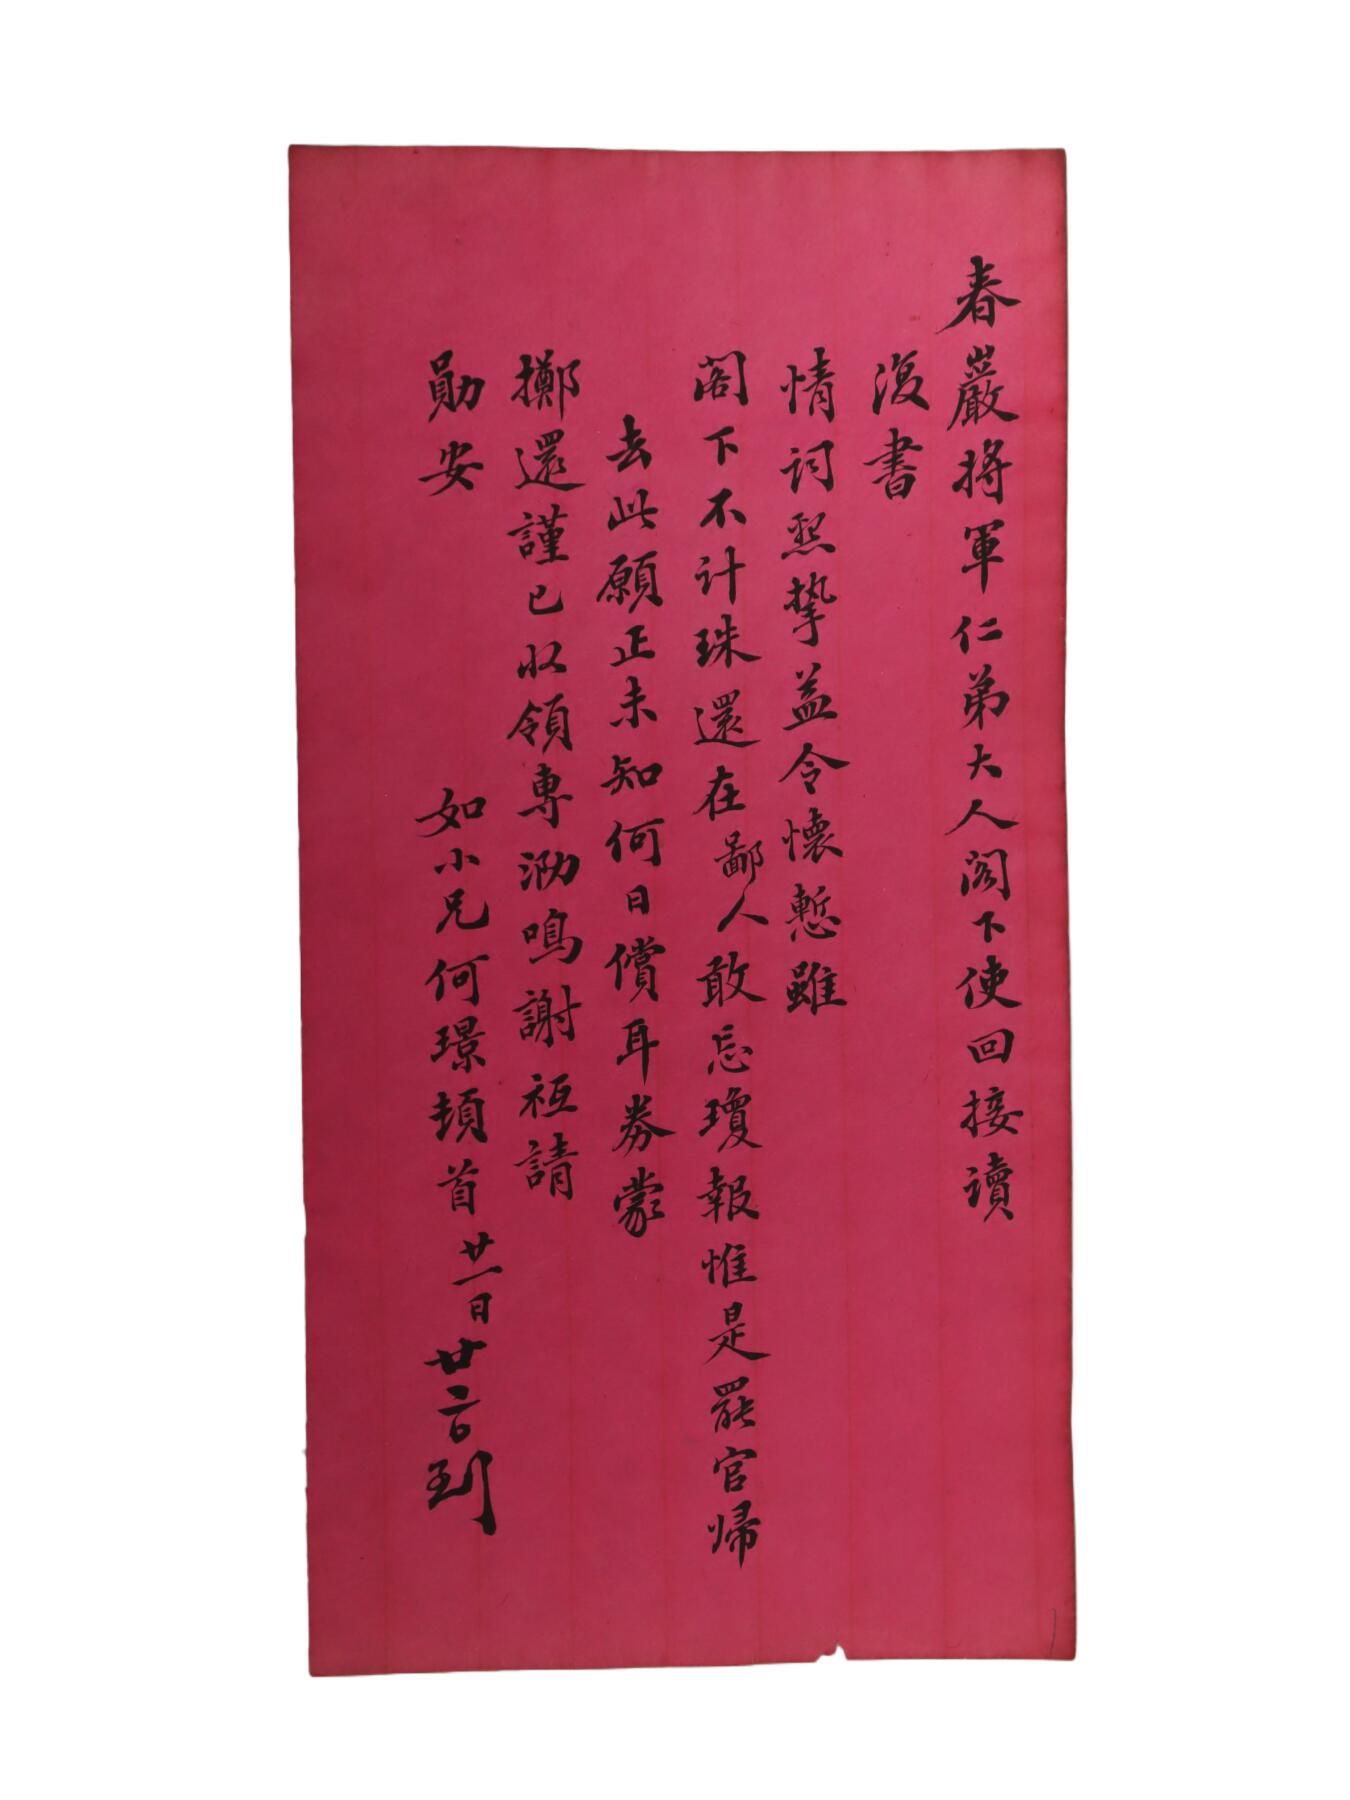 春巖将軍仁弟大人阁下使回接讀
復書
情詞恳挚益令懷慙雖
阁下不计珠還在鄙人敢忘瓊報惟是罷官帰
去此願正未知何日償耳券蒙
擲還謹已收領專泐鳴謝祗請
勛安
如小兄何璟頓首廿一日廿二日到